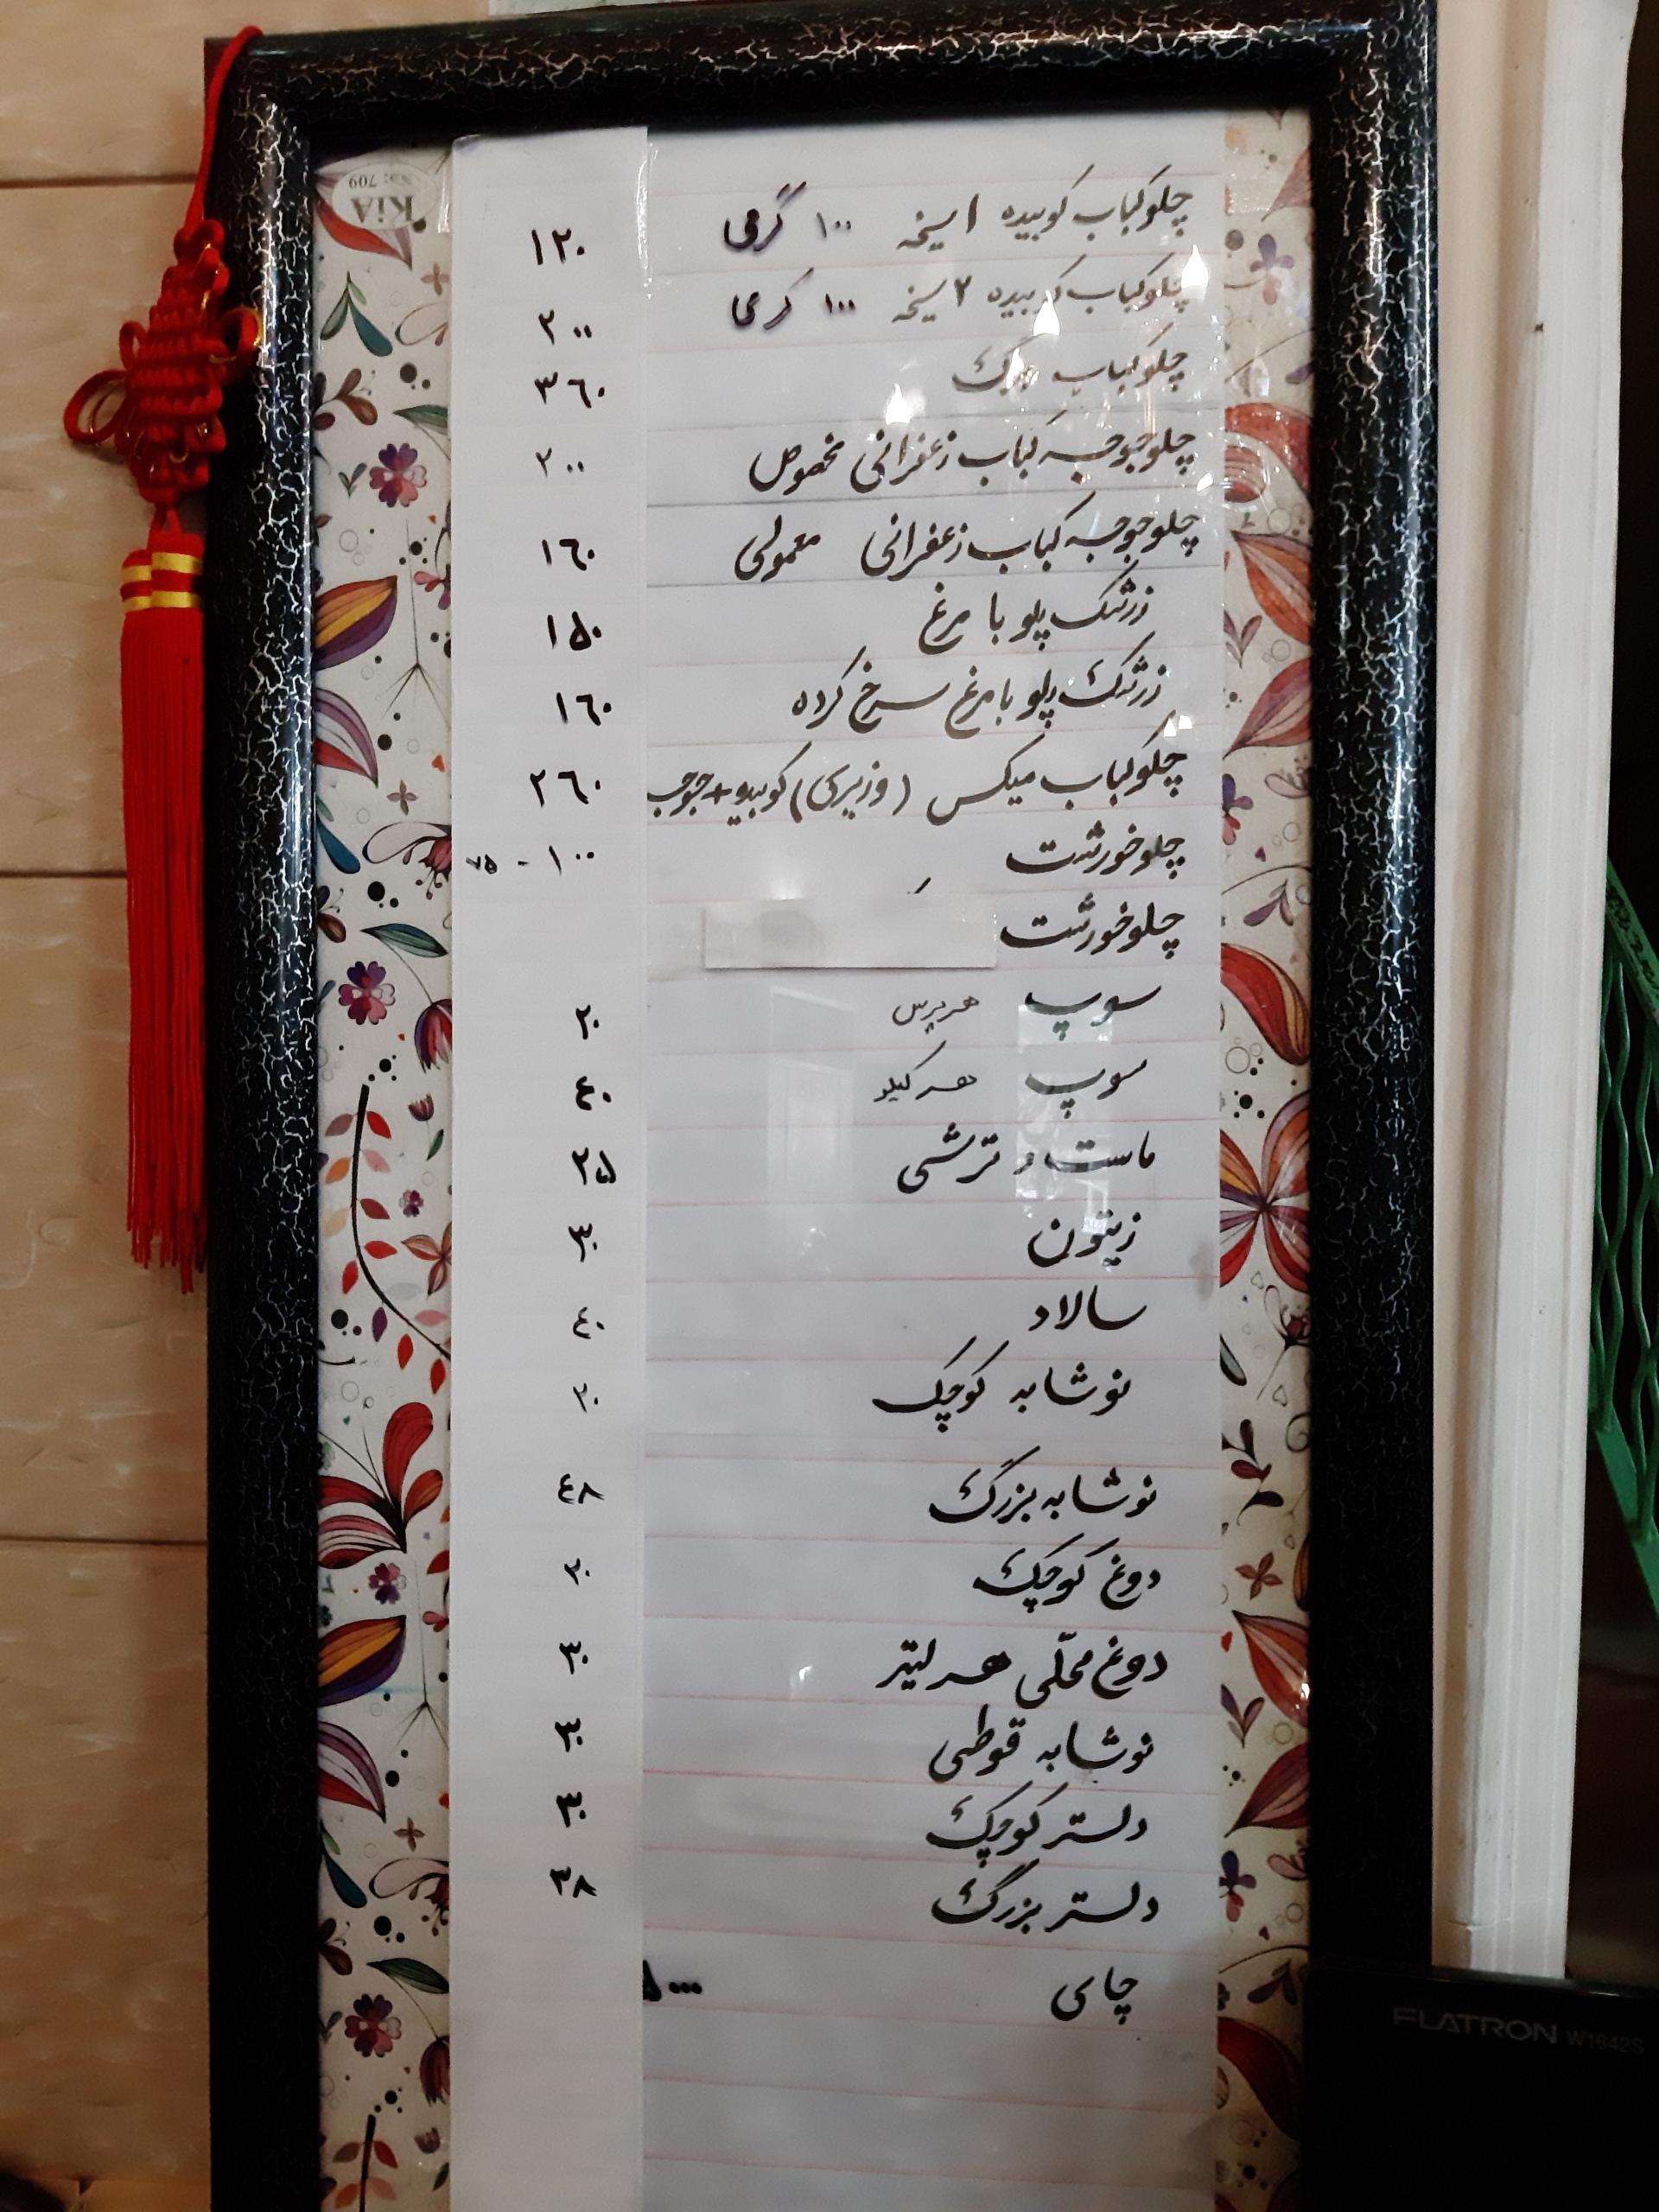 چلوکباب کوبیده ۱ سیخه ۱۰۰ گرمی ۱۲۰
چلوکباب کوبیده ۲ سیخه ۱۰۰ گرمی ۲۰۰
چلوکباب برگ ۳۶۰
چلوجوجه کباب زعفرانی مخصوص ۲۰۰
چلوجوجه کباب زعفرانی معمولی ۱۶۰
زرشک پلو با مرغ ۱۵۰
زرشک پلو با مرغ سرخ کرده ۱۶۰
چلوکباب میکس (وزیری) کوبیده + جوجه ۲۶۰
چلوخورشت ۱۰۰ - ۷۵
چلوخورشت
سوپ هر پرس ۲۰
سوپ هر کیلو ۴۰
ماست و ترشی ۲۵
زیتون ۳۰
سالاد ۴۰
نوشابه کوچک ۲۰
نوشابه بزرگ ۴۸
دوغ کوچک ۲۰
دوغ محلّی هر لیتر ۳۰
نوشابه قوطی ۳۰
دلستر کوچک ۳۰
دلستر بزرگ ۳۸
چای ۵۰۰۰
KiA
No: 709
FLATRON W1642S